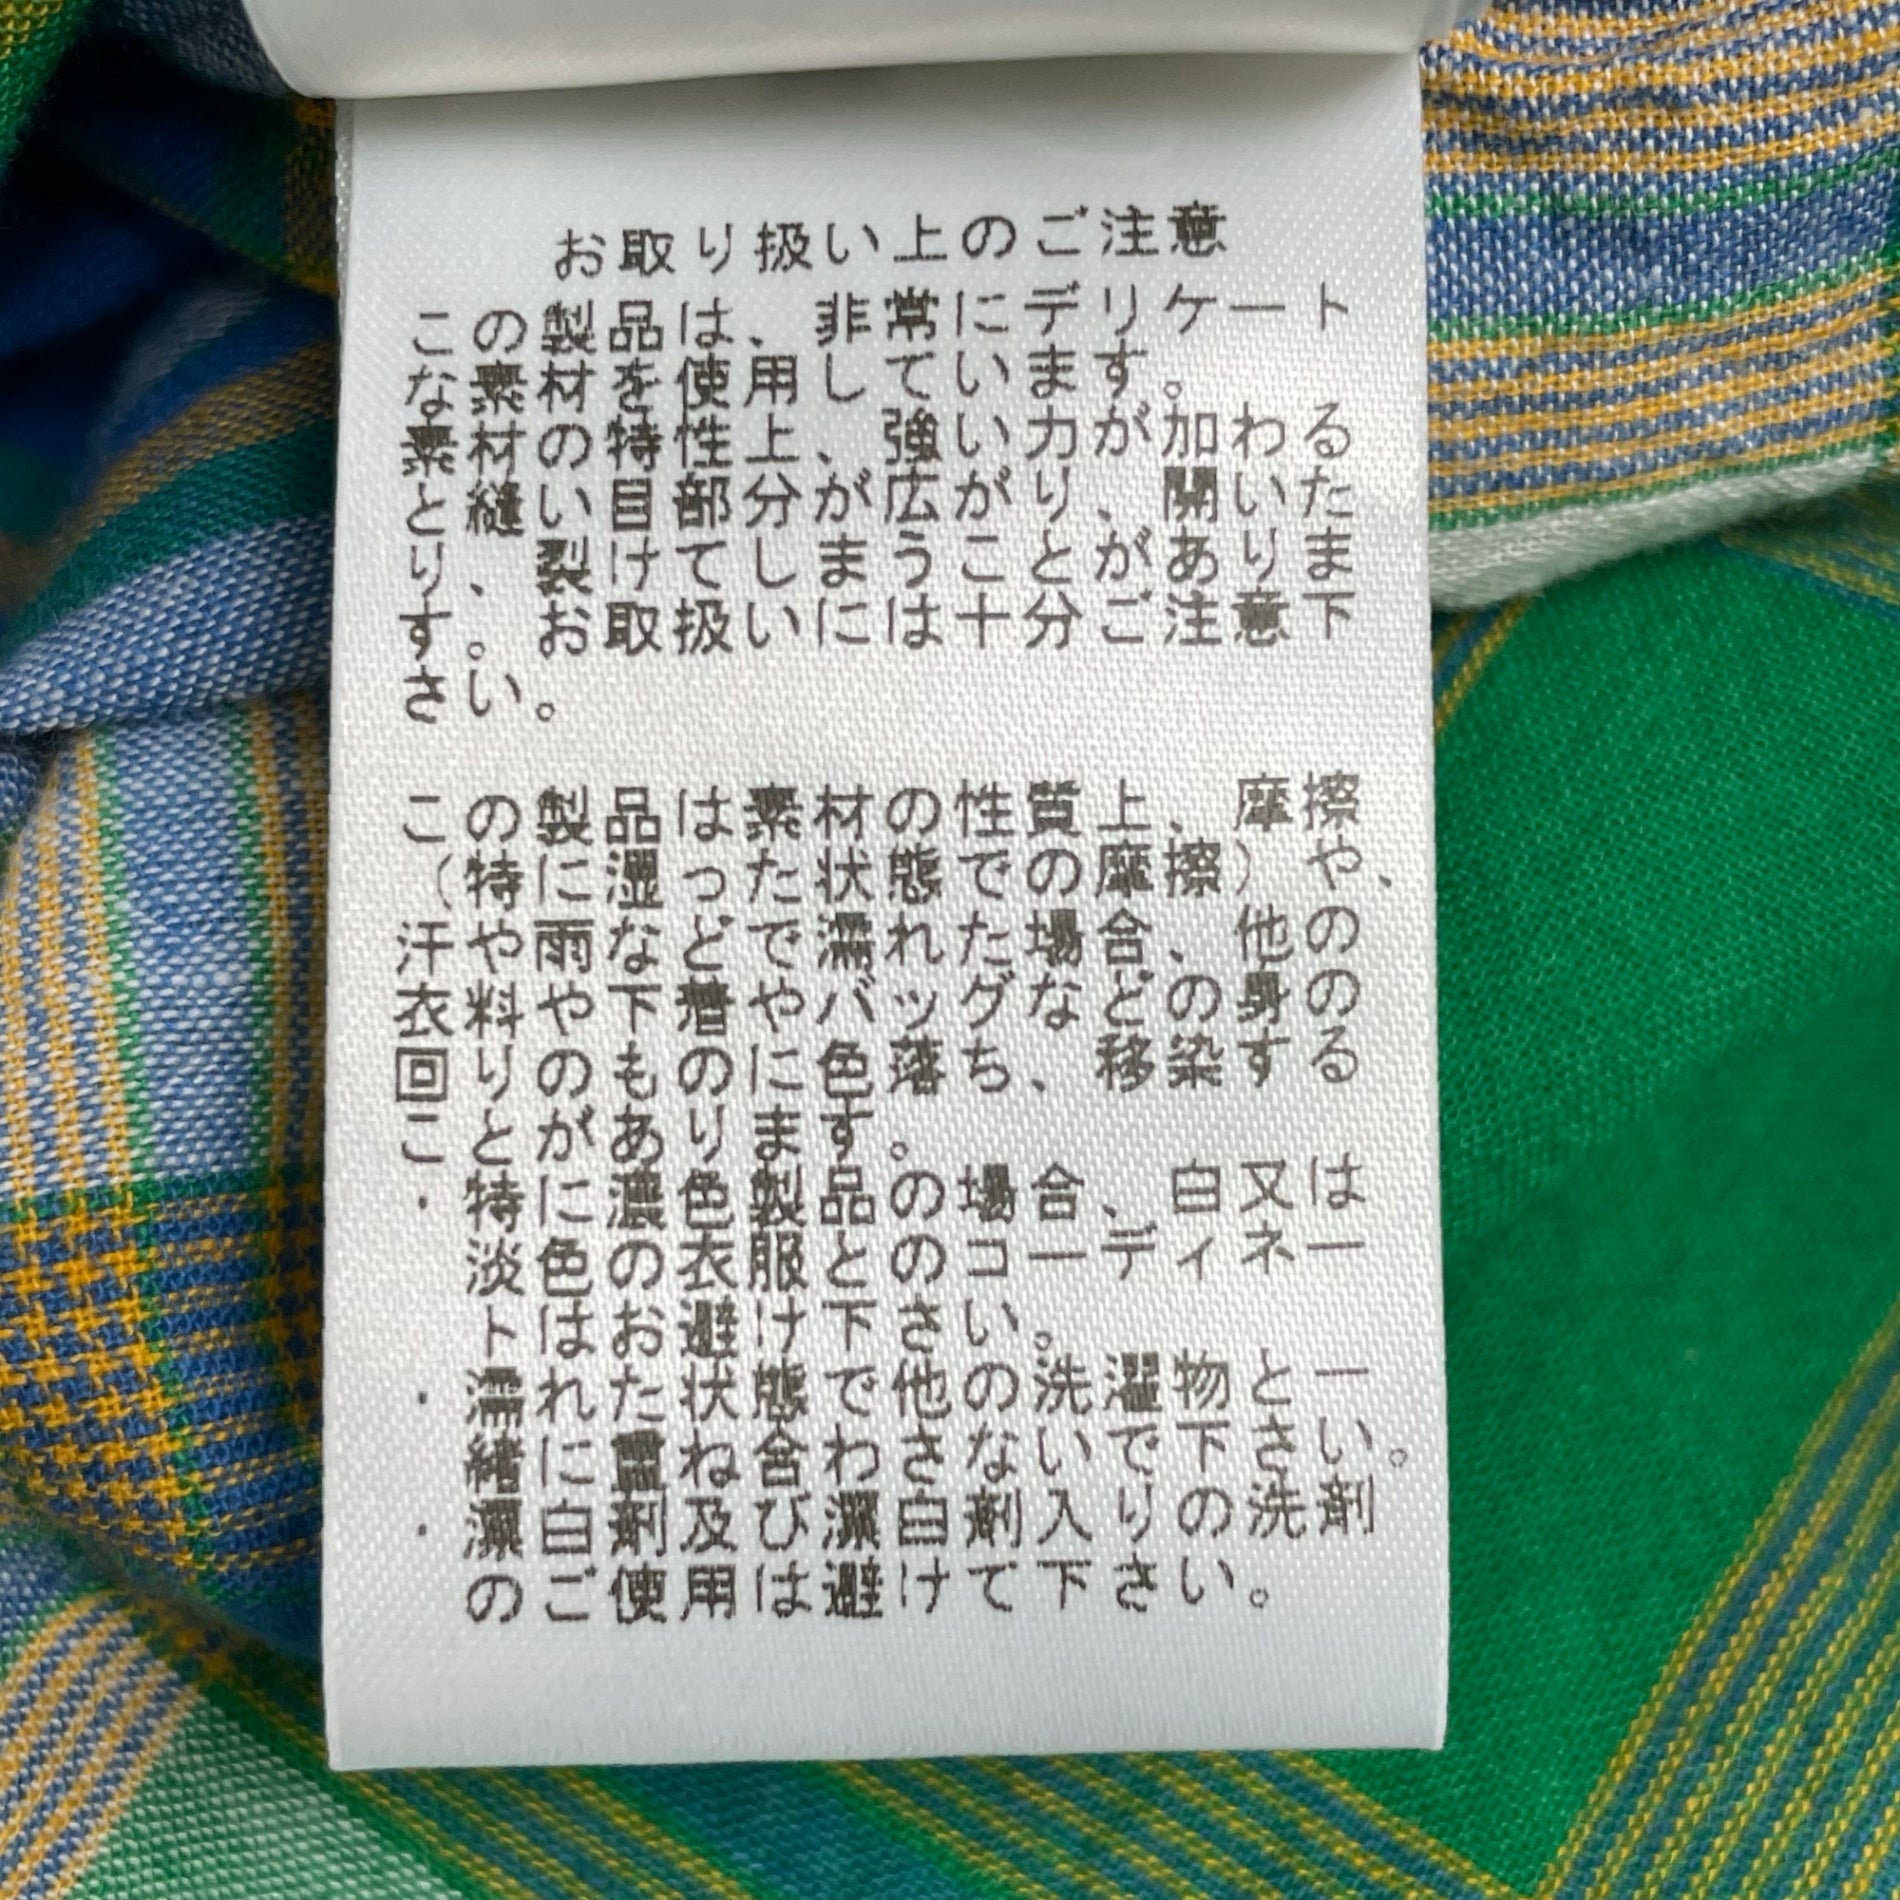 お取り扱い上のご注意
この製品は、非常にデリケート
な素材を使用しています。
素材の特性上、強い力が加わる
と縫い目部分が広がり、開いた
り、裂けてしまうことがありま
す。お取扱いには十分ご注意下
さい。
この製品は素材の性質上、摩擦
（特に湿った状態での摩擦）や、
汗や雨などで濡れた場合、他の
衣料や下着やバッグなどの身の
回りのものに色落ち、移染する
ことがあります。
・特に濃色製品の場合、白又は
淡色の衣服とのコーディネー
トはお避け下さい。
・濡れた状態で他の洗濯物と一
緒に重ね合わさないで下さい。
・漂白剤及び漂白剤入りの洗剤
のご使用は避けて下さい。